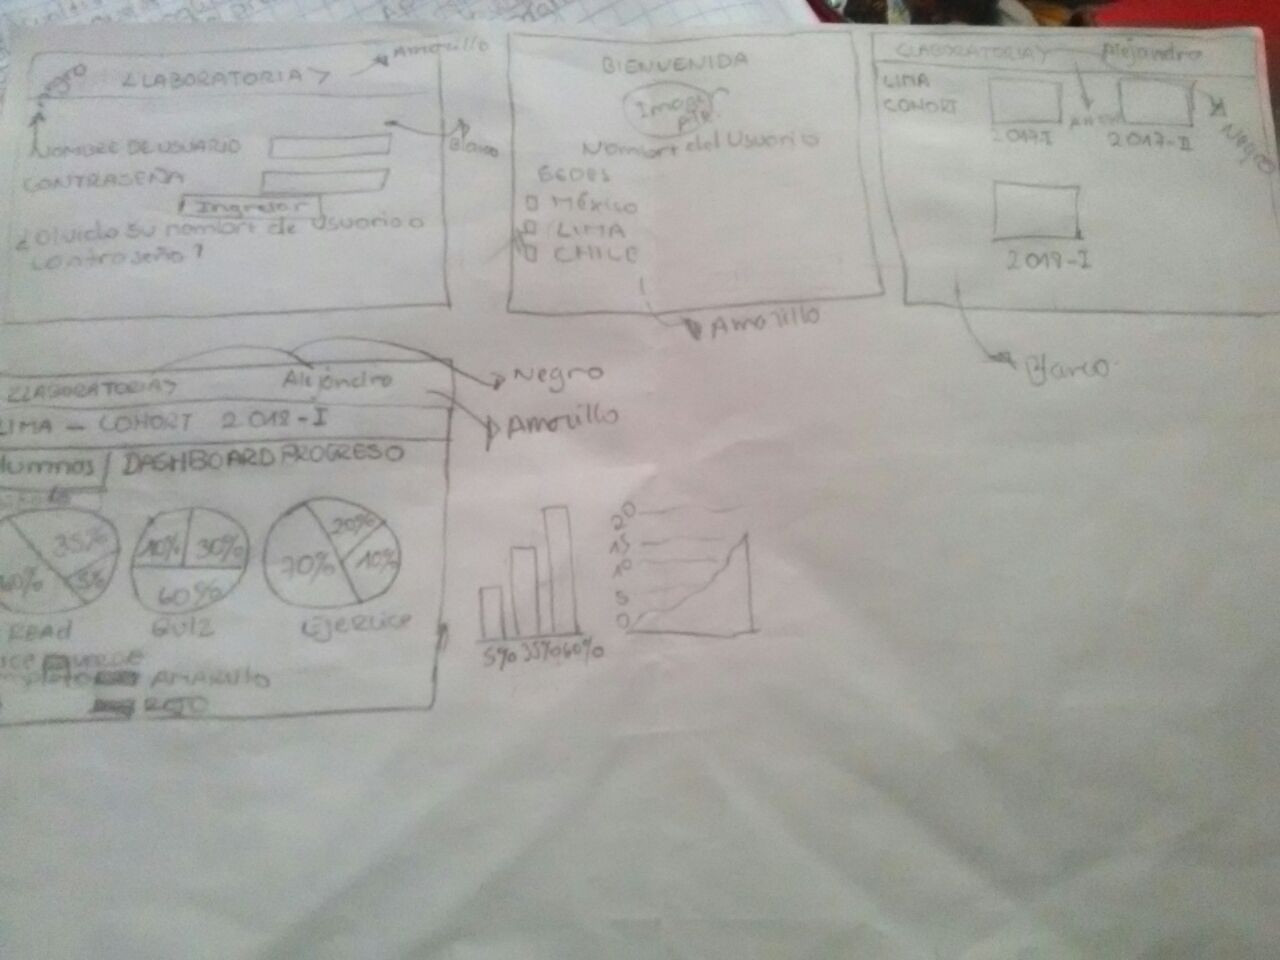 <LABORATORIA>
Amarillo
Negro
Blanco
NOMBRE DE USUARIO
CONTRASEÑA
Ingresar
¿Olvido su nombre de usuario o
contraseña?
BIENVENIDA
Imagen
Nombre del Usuario
SEDES
MÉXICO
LIMA
CHILE
Amarillo
<LABORATORIA> Alejandro
LIMA
COHORT
2017-I 2017-II
Negro
2018-I
Blanco
<LABORATORIA> Alejandro
Negro
Amarillo
LIMA - COHORT 2018-I
lumnos DASHBOARD PROGRESO
60% 35% 5%
10% 30% 60%
70% 20% 10%
READ QUIZ Ejercice
VERDE
AMARILLO
ROJO
5% 35% 60%
20
15
10
5
0